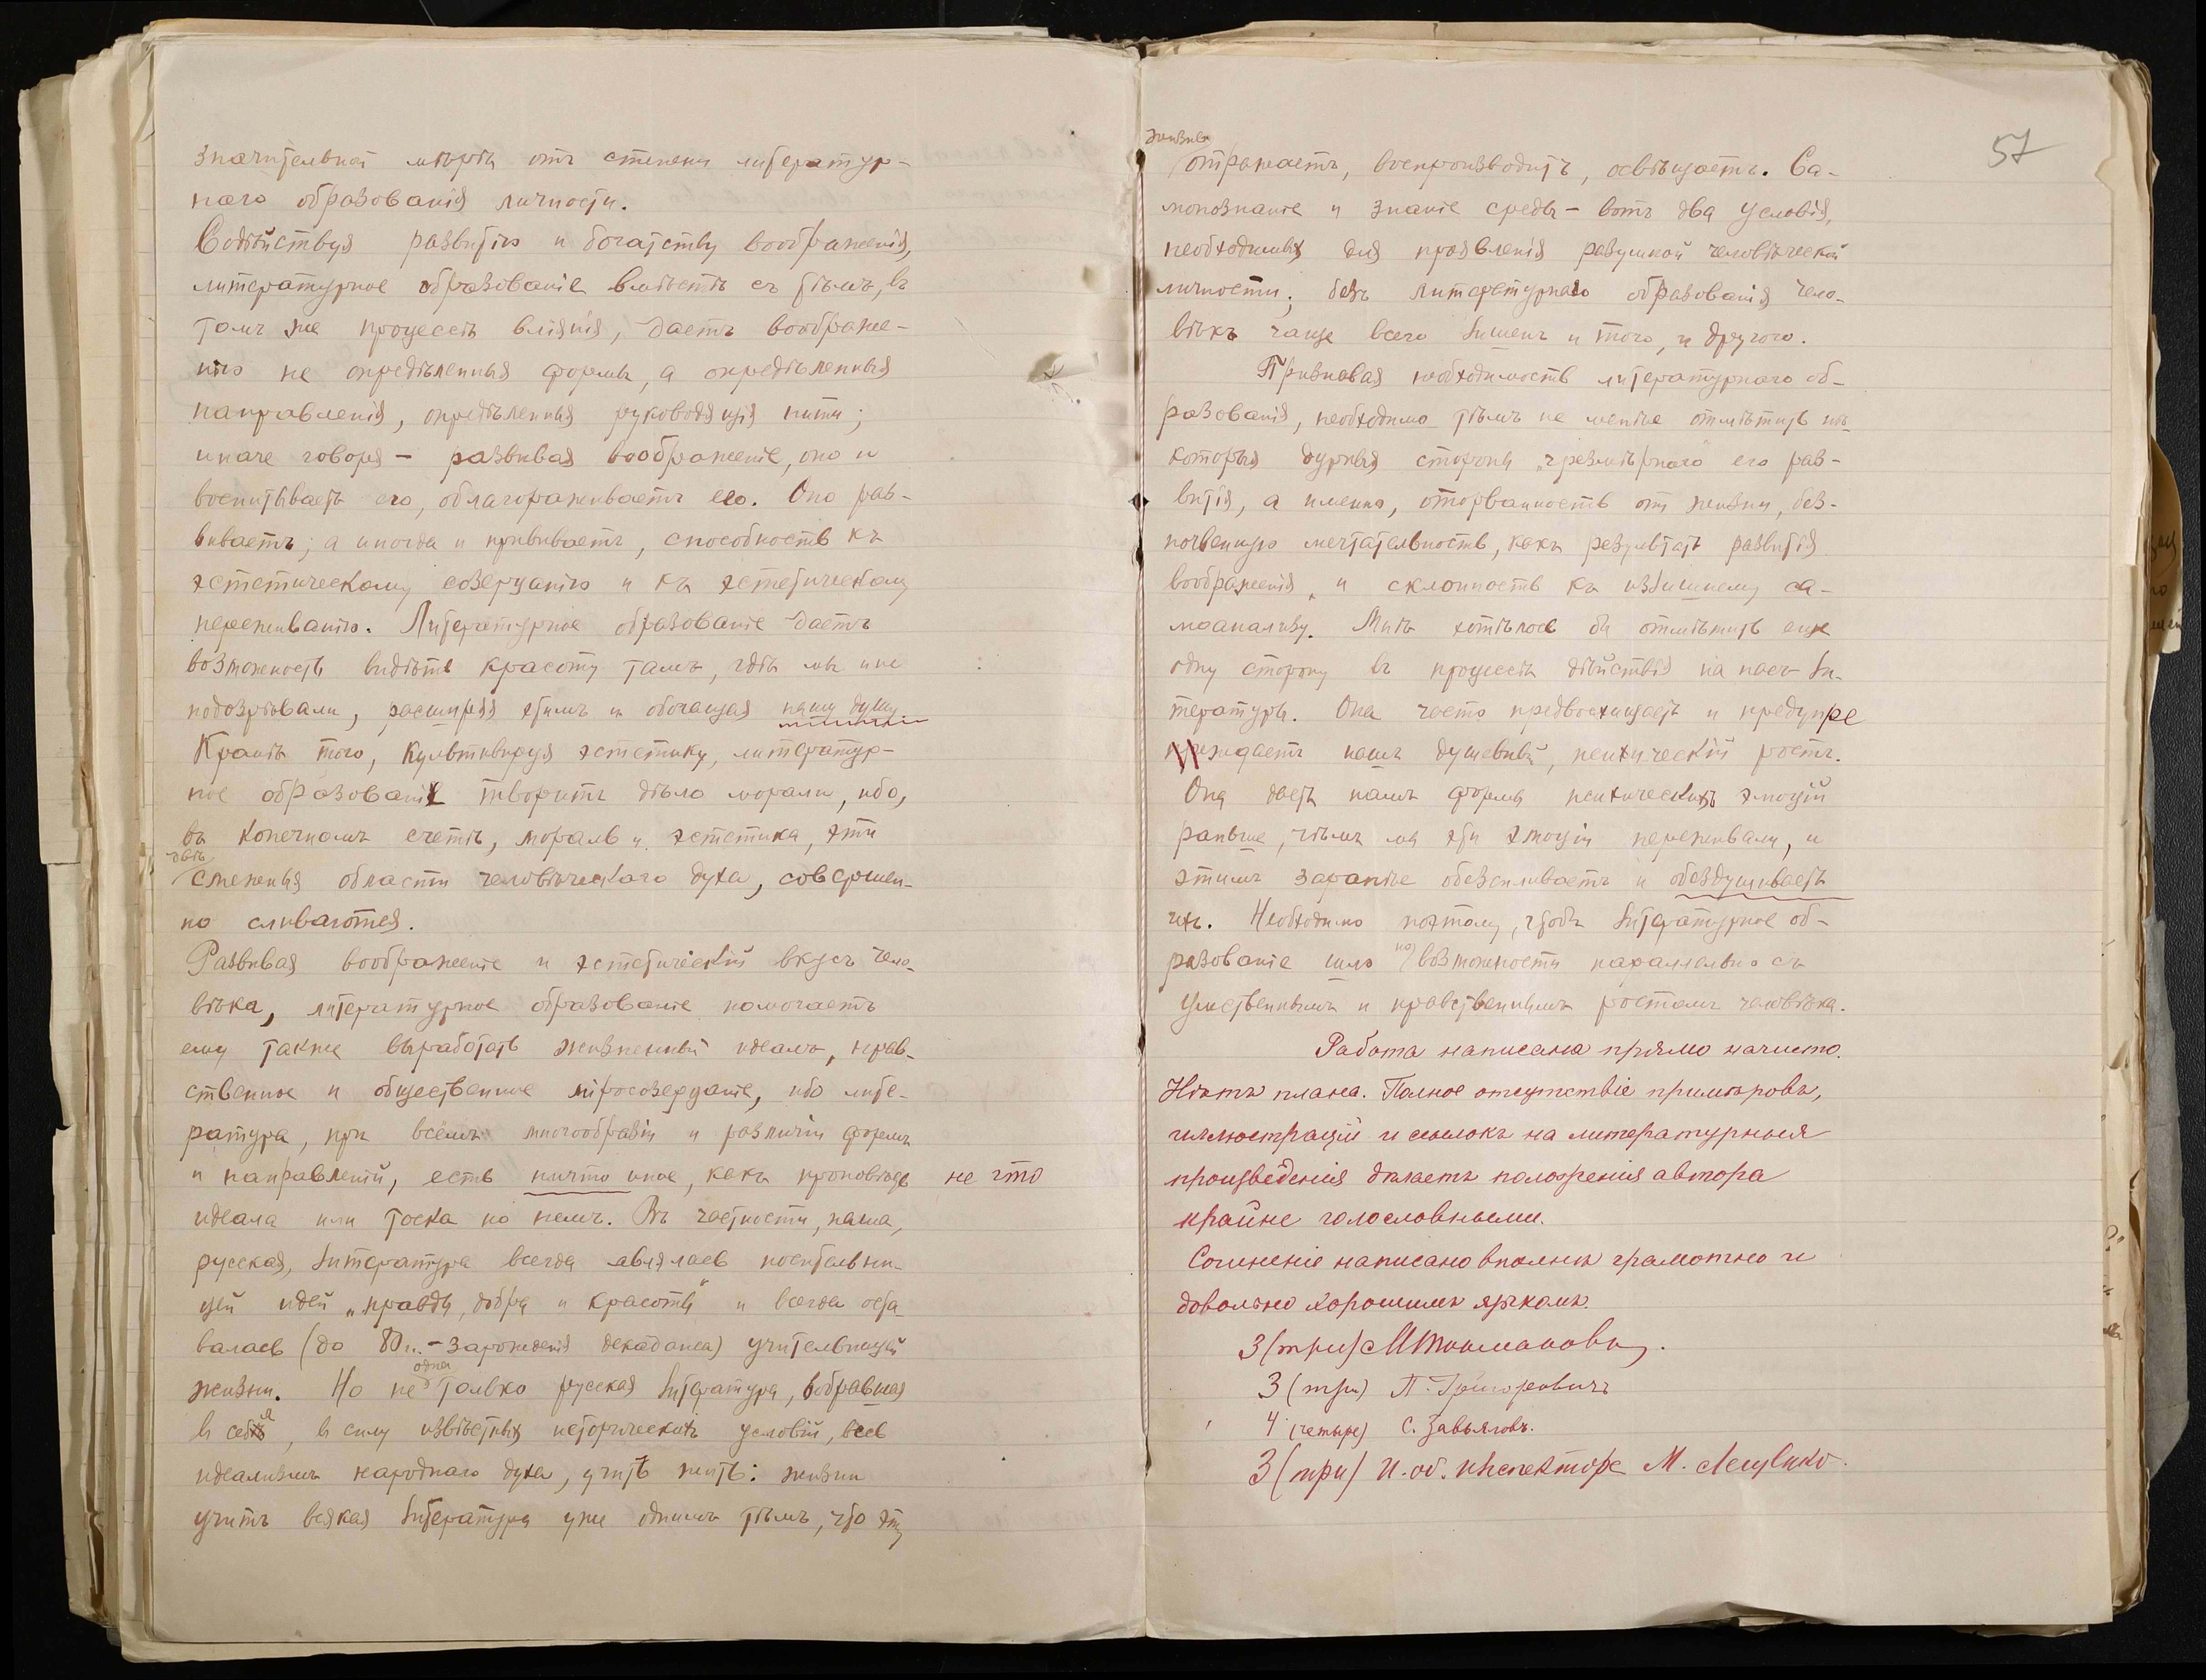 значительной мѣрѣ отъ степени литератур-
наго образованія личности.
Содѣйствуя развитію и богатству воображенія,
литературное образованіе вмѣстѣ съ тѣмъ, въ
томъ же процессѣ вліянія, даетъ воображе-
нію не опредѣленныя формы, а опредѣленныя
направленія, опредѣленныя руководящія нити;
иначе говоря – развивая воображеніе, оно и
воспитываетъ его, облагораживаетъ его. Оно раз-
виваетъ, а иногда и прививаетъ, способность къ
эстетическому созерцанію и къ эстетическому
переживанію. Литературное образованіе даетъ
возможность видѣть красоту тамъ, гдѣ мы и не
подозрѣвали, расширяя этимъ и обогащая нашу душу
Кромѣ того, культивируя эстетику, литератур-
ное образованіе творитъ дѣло морали, ибо,
въ конечномъ счетѣ, мораль и эстетика, эти
двѣ
смежныя области человѣческаго духа, совершен-
но сливаются.
Развивая воображеніе и эстетическій вкусъ чело-
вѣка, литературное образованіе помогаетъ
ему также выработать жизненный идеалъ, нрав-
ственное и общественное міросозерцаніе, ибо лите-
ратура, при всемъ многообразіи и различіи формъ
и направленій, есть ничто иное, какъ проповѣдь не что
идеала или тоска по немъ. Въ частности, наша,
русская, литература всегда являлась носительни-
цей идей „правды, добра и красоты" и всегда оста
валась (до 80 г. – зарожденія декаданса) учительницей
одна
жизни. Но не только русская литература, вобравшая
въ себя, въ силу извѣстныхъ историческихъ условій, весь
идеализмъ народнаго духа, учитъ жить: жизни
учитъ всякая литература уже однимъ тѣмъ, что эту
57
жизнь
отражаетъ, воспроизводитъ, освѣщаетъ. Са-
мопознаніе и знаніе среды – вотъ два условія,
необходимыя для проявленія разумной человѣческой
личности; безъ литературнаго образованія чело-
вѣкъ чаще всего лишенъ и того, и другого.
Признавая необходимость литературнаго об-
разованія, необходимо тѣмъ не менѣе отмѣтить нѣ-
которыя дурныя стороны „чрезмѣрнаго" его раз-
витія, а именно, оторванность отъ жизни, без-
почвенную мечтательность, какъ результатъ развитія
воображенія, и склонность къ излишнему са-
моанализу. Мнѣ хотѣлось бы отмѣтить еще
одну сторону въ процессѣ дѣйствія на насъ ли-
тературы. Она часто предвосхищаетъ и предупре
ждаетъ нашъ душевный, психическій ростъ.
Она даетъ намъ формы психическихъ эмоцій
раньше, чѣмъ мы эти эмоціи переживали, и
этимъ заранѣе обезсиливаетъ и обездушиваетъ
ихъ. Необходимо поэтому, чтобы литературное об-
по
разованіе шло возможности параллельно съ
умственнымъ и нравственнымъ ростомъ человѣка.
Работа написана прямо начисто.
Нѣтъ плана. Полное отсутствіе примѣровъ,
иллюстрацій и ссылокъ на литературныя
произведенія дѣлаетъ положенія автора
крайне голословными.
Сочиненіе написано вполнѣ грамотно и
довольно хорошимъ языкомъ.
3 (три)
3 (три) П. Григоровичъ
4 (четыре) С. Завьяловъ.
3 (три) И. об. инспектора М.